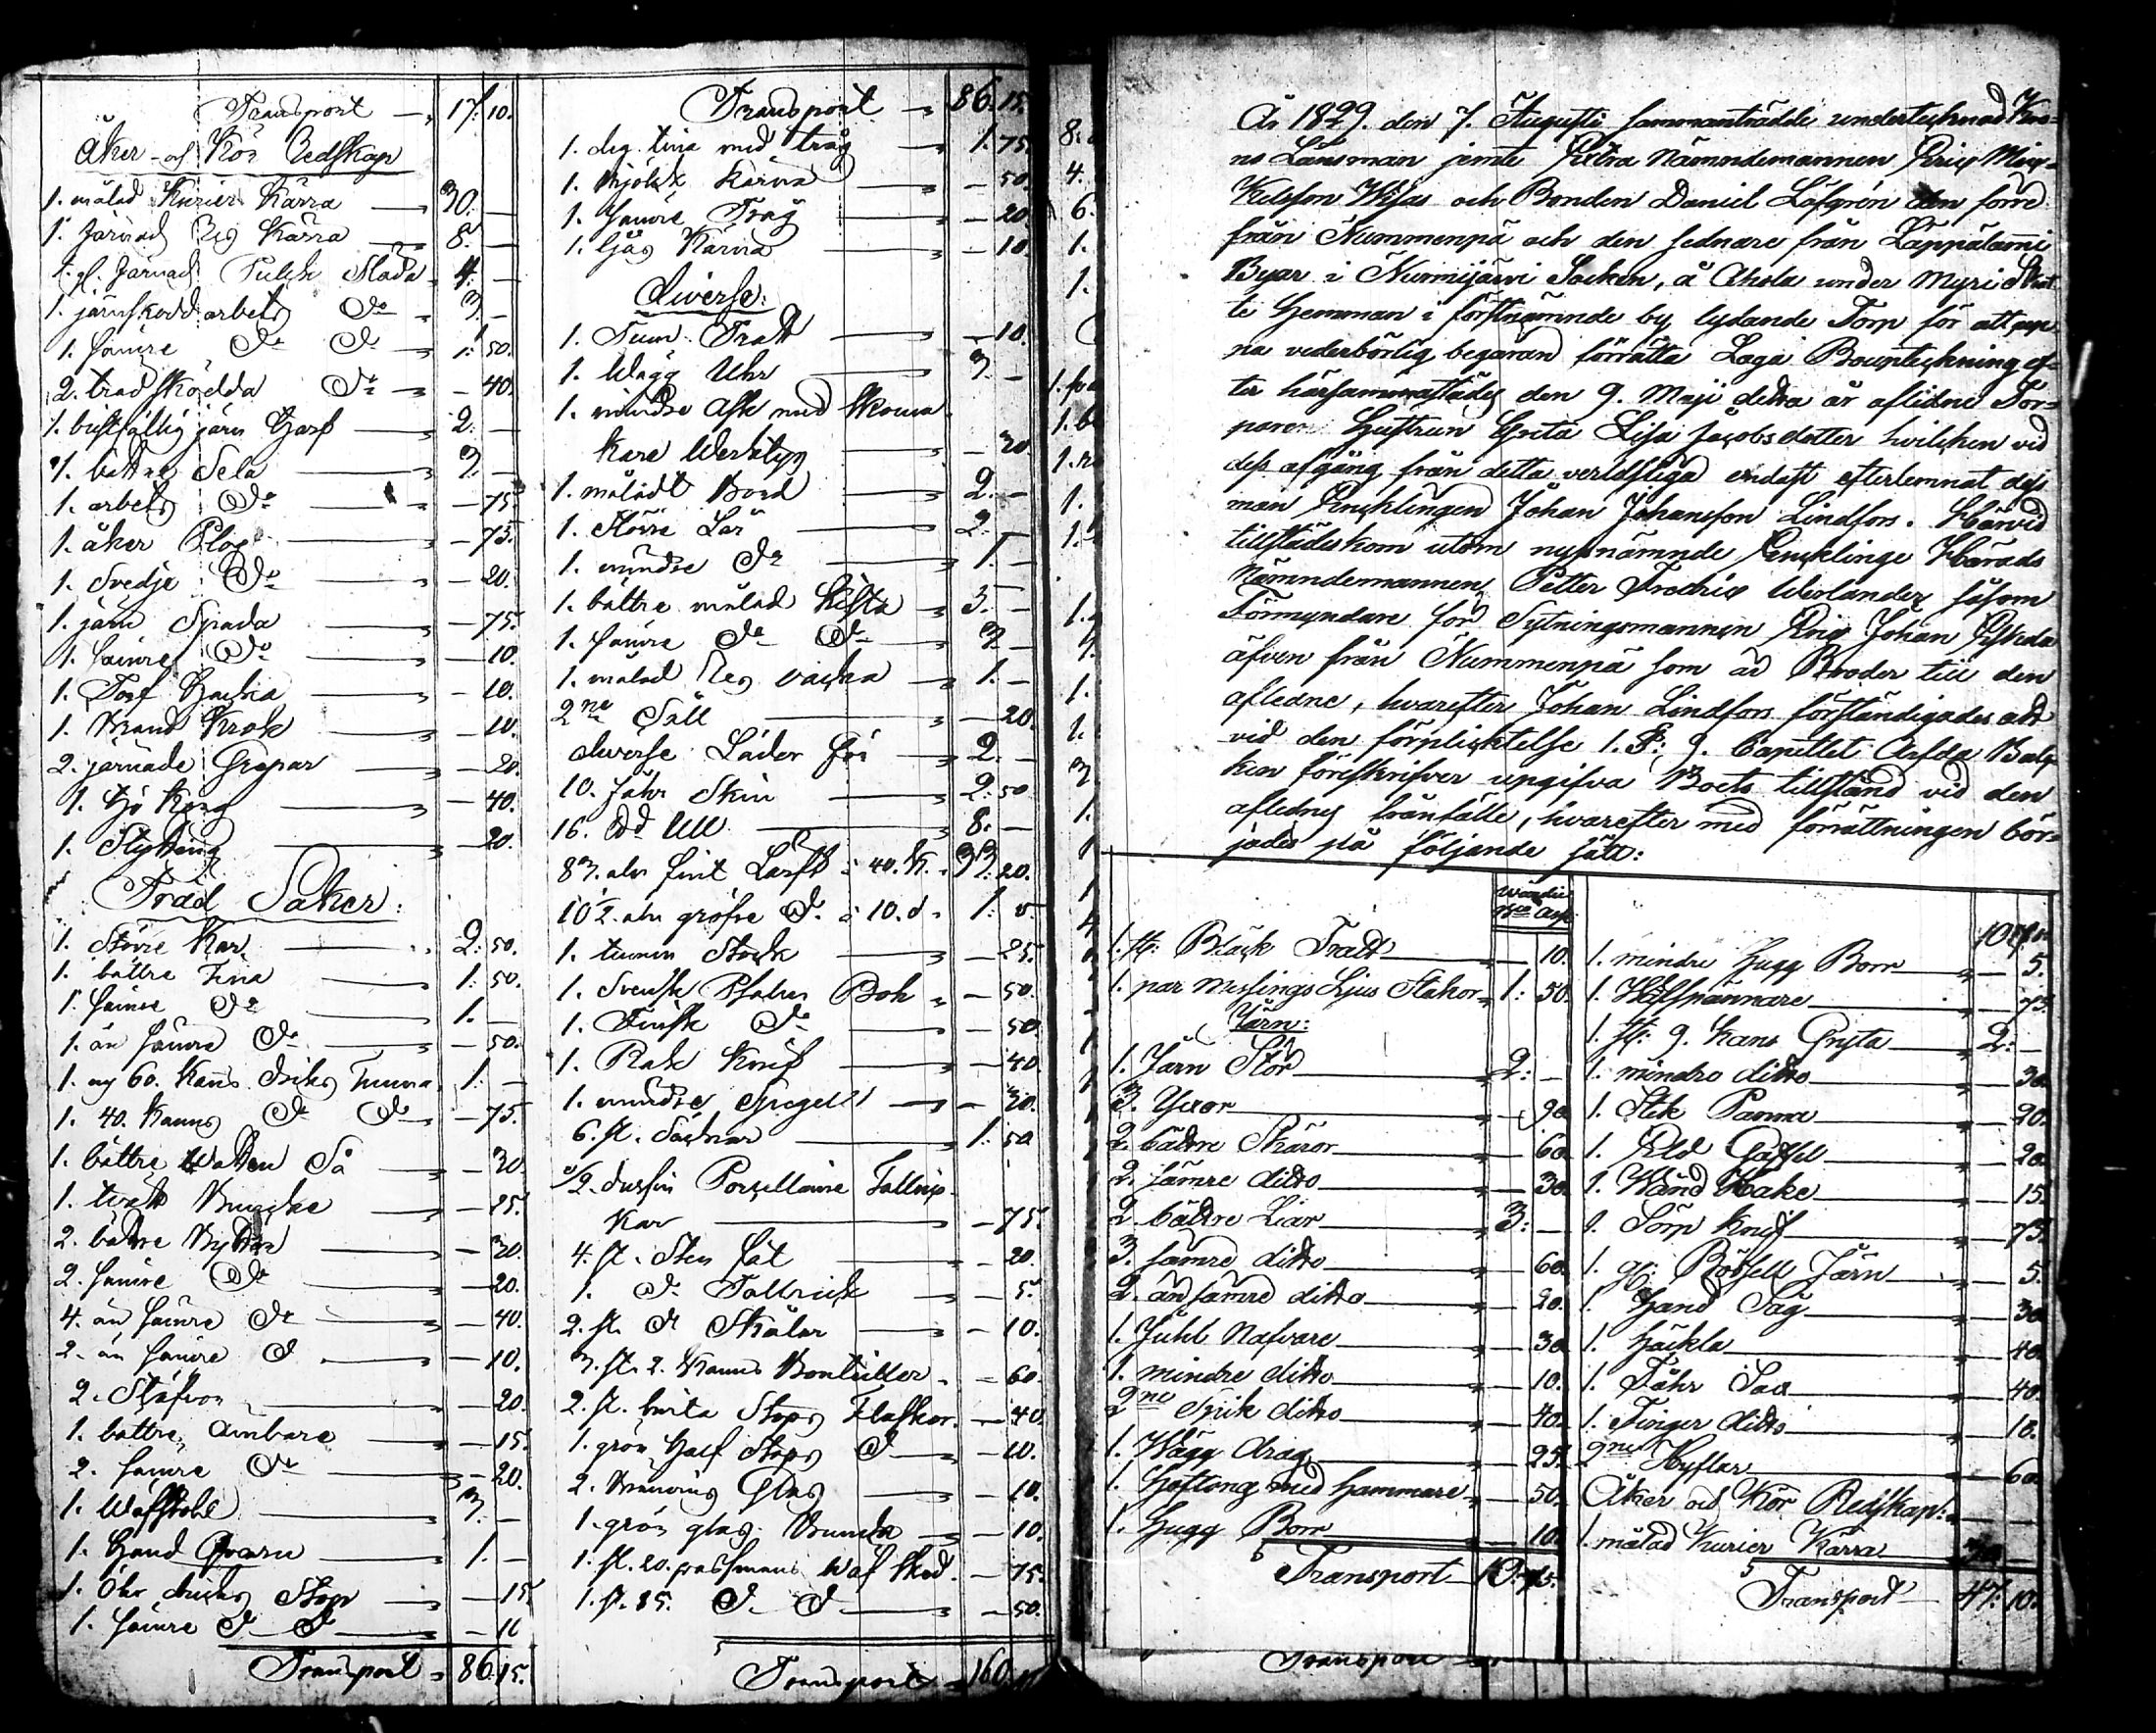 Transport 17. 10.
Åker- oc Kör Redskap
1. målad Kurier Kärra 30. —
1. Järnad Res Kärra 8. —
1. gl. Järnad Släda 4. —
1. järnskodd arbets do 3. —
1. sämre do do 1: 50.
2. trädskodda do — 40.
1. bristfällig järn Harf 2. —
1. bättre Sela 3. —
1. arbets do — 75.
1. åker Plog — 75.
1. Svedje do — 20.
1. järn Spada — 75.
1. sämre do — 10.
1. Torf Hacka — 10.
1. Brand Krok — 10.
2. järnade Grepar — 20.
1. Hö Korg — 40.
1. — 20.
Träd Saker:
1. Större Kar 2: 50.
1. bättre Tina 1: 50.
1. sämre do 1. —
1. än sämre do — 50.
1. ny 60. Kanns Driks Tunna 1. —
1. 40. Kanns do do — 75.
1. bättre Watten Så — 30.
1. Buncke — 25.
2. bättre Byttor — 30.
2. sämre do — 20.
4. än sämre do — 40.
2. än sämre do — 10.
2. Stäfvor — 20.
1. bättre Ämbare — 15.
2. sämre do — 20.
1. Wäfstohl 3. —
1. Hand Qvarn 1. —
1. Stop — 15.
1. sämre do do — 10
Transport 86. 15.
Transport 86. 15.
1. deg tina med tråg 1. 75.
1. Mjölk Kärna — 50.
1. sämre Tråg — 20
1. ljus Kärna — 10.
Diverse:
1. Tunn Tratt — 10.
1. Wägg Uhr 3. —
1. mindre Ask med Skoma
kare Werktyg — 20
1. måladt Bord 2. —
1. Större Lår 2. —
1. mindre do 1. —
1. bättre målad Kista 5. —
1. sämre do do 3. —
1. målad Res vacka 1. —
2ne Såll — 20.
diverse Läder för 2. —
10. Fåhr Skin 2: 50
16. Ull 8. —
83. aln fint Lärft à 40. K. 33. 20.
10½. aln gröfre do à 10. d 1: 5.
1. tumm Stock — 25.
1. Svensk Psalm Bok — 50.
1. Finsk do — 50.
1. Rak Knif — 40
1. mindre Spegel — 30.
6. st. Säckar 1: 50
½. dussin Porcellaine Tallric-
kar — 75.
4. st. Sten fat — 20.
1. do Tallrick — 5.
2. st. do Skålar — 10.
3. st. 2. Kanns Bouteiller — 60.
2. st. hvita Stops Flaskor — 40
1. grön Half Stops do — 10.
2. Brännvins Glas — 10.
1. grön glas Buncka — 10.
1. st. 20. Wäf Sked — 75.
1. st. 15. do do — 50.
Transport 160.
År 1829. den 7. Augusti sammanträdde undertecknad Kro-
no Länsman jemte Extra Nämndemannen Eric Mic-
kelsson Wisas och Bonden Daniel Löfgrén den förre
från Nummenpä och den sednare från Lappälami
Byar i Nurmijärvi Socken, å Ahola under Myri Skat-
te Hemman i förstnämnde by lydande Torp för att uppå
na vederbörlig begäran förrätta Laga Bouptekning ef-
ter härsammastädes den 9. Maji detta år aflidne Tor-
paren Hustrun Greta Lisa Jacobsdotter hvilcken vid
dess afgång från detta verldsliga endast efterlemnat dess
man Encklingen Johan Johansson Lindfors. Härvid
tillstädeskom utom nyssnämnde Encklinge Härads
Nämndemannen Petter Fredric Weslander såsom
Förmyndare för Sytningsmannen Eric Johan
äfven från Nummenpä som är Broder till den
afledne, hvarefter Johan Lindfors förständigades att
vid den förplicktelse 1. §: 9. Capittlet Ärfda Bal-
ken föreskrifver uppgifva Boets tillstånd vid den
aflednes frånfälle, hvarefter med förrättningen bör-
jades på följande sätt:
1. st: Bläck Tratt — 10.
1. par Messings Ljus Stakar 1: 50.
Järn:
1. Järn Stör 2: —
3. Yxor — 90
2. bättre Skäror — 60
2. sämre ditto — 30.
2. bättre Liar 3: —
3. sämre ditto — 60.
2. än sämre ditto — 20.
1. Juhl Nafvare — 30.
1. mindre ditto — 10.
2ne Spik ditto — 40.
1. Wägg drag — 25.
1. Hoftong med Hammare — 50.
1. Hugg Borr — 10.
Transport 10: 75.
1. mindre Hugg Borr — 5.
1. Hofspännare — 75.
1. st: 9. kans Gryta 2: —
1. mindre ditto — 30.
1. Stek Panna — 20.
1. Eld Gaffel — 20.
1. Wånd Hake — 15.
1. Törp Knif — 75.
1. gl: Bössell Järn — 5.
1. Hand Såg — 30
1. Häckla — 40.
1. Fåhr Sax — 40.
1. Finger ditto — 10.
2ne Hyflar — 60.
Åker och Kör Redskap:
1. målad Kurier Kärra 30 —
Transport 47: 10.
Transport